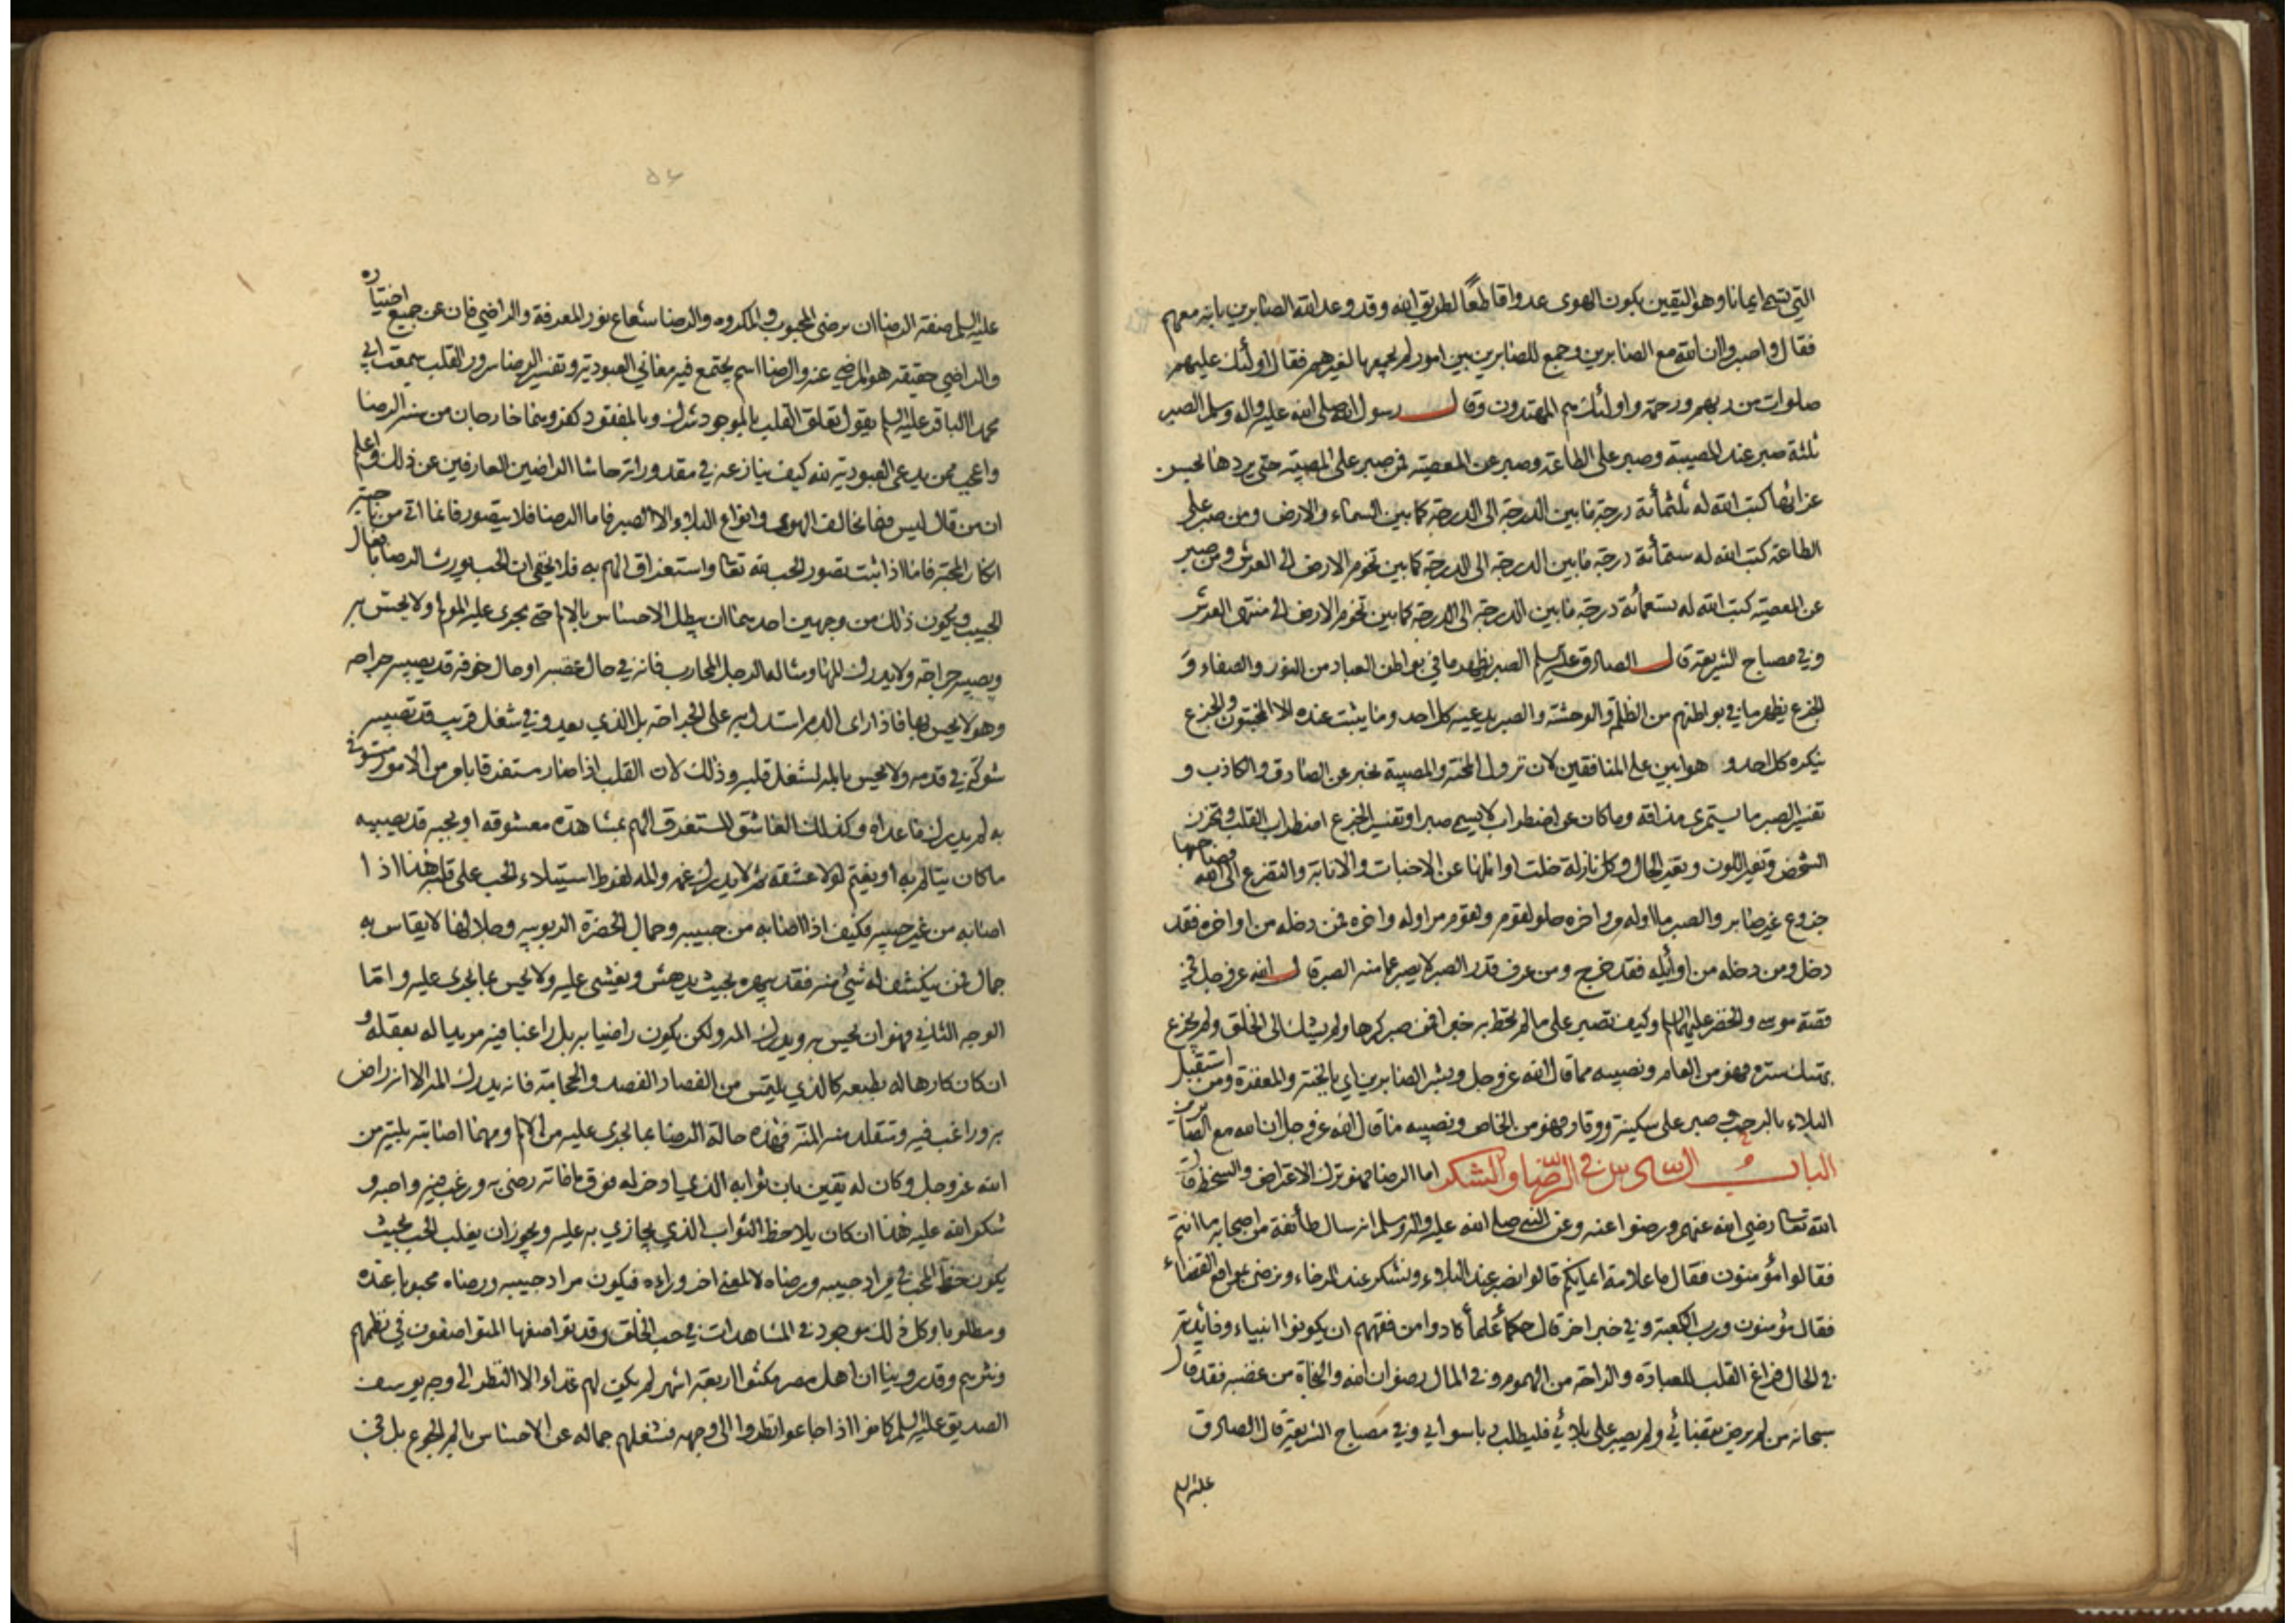 التي تسمى ايمانا وهو اليقين بكون الهوى عدوا قاطعًا لطريق الله وقد وعد الله الصابرين بانه معهم
فقال واصبروا ان الله مع الصابرين وجمع للصابرين بين امور لم يجمعها لغيرهم فقال اولئك عليهم
صلوات من ربهم ورحمة واولئك هم المهتدون وقال رسول الله صلى الله عليه واله وسلم الصبر
ثلثة صبر عند المصيبة وصبر على الطاعة وصبر عن المعصية فمن صبر على المصيبة حتى يردها بحسن
عزائها كتب الله له ثلثمأئة درجة ما بين الدرجة الى الدرجة كما بين السماء والارض ومن صبر على
الطاعة كتب الله له ستمأئة درجة ما بين الدرجة الى الدرجة كما بين تخوم الارض الى العرش ومن صبر
عن المعصية كتب الله له تسعمأئة درجة ما بين الدرجة الى الدرجة كما بين تخوم الارض الى منتهى العرش
وفي مصباح الشريعة قال الصادق عليه السلم الصبر يظهر ما في بواطن العباد من النور والصفاء و
الجزع يظهر ما في بواطنهم من الظلمة والوحشة والصبر يدعيه كل احد وما يثبت عنده الا المخبتون والجزع
ينكره كل احد و هو ابين على المنافقين لان نزول المحنة والمصيبة يخبر عن الصادق والكاذب و
تفسير الصبر ما يستمرى مذاقه وما كان عن اضطراب لا يسمى صبرا وتفسير الجزع اضطراب القلب وتحزن
الشخص وتغير اللون وتغير الحال وكل نازلة خلت اوائلها عن الاخبات والانابة والتضرع الى الله فصاحبها
جزوع غير صابر والصبر ما اوله مر واخره حلو لقوم ولقوم مر اوله واخره فمن دخله من اواخره فقد
دخل ومن دخله من اوائله فقد خرج ومن عرف قدر الصبر لا يصبر عما منه الصبر قال الله عز وجل في
قصة موسى والخضر عليهما السلام وكيف تصبر على ما لم تحط به خبرا فمن صبر كرها ولم يشك الى الخلق ولم يجزع
بهتك ستره فهو من العام ونصيبه مما قال الله عز وجل وبشر الصابرين اي بالجنة والمغفرة ومن استقبل
البلاء بالرحب وصبر على سكينة ووقار فهو من الخاص ونصيبه ما قال الله عز وجل ان الله مع الصابرين
الباب السادس في الرضا والشكر اما الرضا فهو ترك الاعتراض والسخط قال
الله تعالى رضي الله عنهم ورضوا عنه وعن النبي صلى الله عليه واله وسلم انه سال طائفة من اصحابه ما انتم
فقالوا مؤمنون فقال ما علامة ايمانكم قالوا نصبر عند البلاء ونشكر عند الرخاء ونرضى بمواقع القضاء
فقال مؤمنون ورب الكعبة وفي خبر اخر قال حكماء علماء كادوا من فقههم ان يكونوا انبياء وفائدته
في الحال فراغ القلب للعبادة والراحة من الهموم وفي المال رضوان الله والنجاة من غضبه فقد قال
سبحانه من لم يرض بقضائي ولم يصبر على بلائي فليطلب ربا سوائي وفي مصباح الشريعة قال الصادق
عليه السلم
٥٦
عليه السلم صفة الرضا ان يرضى المحبوب والمكروه والرضا شعاع نور المعرفة والراضي فان عن جميع اختياره
والراضي حقيقة هو المرضي عنه والرضا اسم يجتمع فيه معاني العبودية وتفسير الرضا سرور القلب سمعت ابي
محمد الباقر عليه السلم يقول تعلق القلب بالموجود شرك وبالمفقود كفر وهما خارجان من سنة الرضا
واعجب ممن يدعي العبودية لله كيف ينازعه في مقدوراته حاشا الراضين العارفين عن ذلك واعلم
ان من قال ليس فيما يخالف الهوى وانواع البلاء الا الصبر فاما الرضا فلا يتصور فانما اتى من ناحية
انكار المحبة فاما اذا ثبت تصور الحب لله تعالى واستغراق الهم به فلا يخفى ان الحب يورث الرضا بافعال
الحبيب ويكون ذلك من وجهين احدهما ان يبطل الاحساس بالالم حتى يجري عليه المولم ولا يحس به
ويصيبه جراحة ولا يدرك المها ومثاله الرجل المحارب فانه في حال غضبه او حال خوفه قد يصيبه جراحه
وهو لا يحس بها فاذا راى الدم استدل به على الجراحة بل الذي يعدو في شغل قريب قد تصيبه
شوكة في قدمه ولا يحس بالمه لشغل قلبه وذلك لان القلب اذا صار مستغرقا بامر من الامور مستوفى
به لم يدرك ما عداه وكذلك العاشق المستغرق الهم بمشاهدة معشوقه او بحبه قد يصيبه
ما كان يتالم به او يغتم لولا عشقه ثم لا يدرك غمه والمه لفرط استيلاء الحب على قلبه هذا اذا
اصابه من غير حبيبه فكيف اذا اصابه من حبيبه وجمال الحضرة الربوبيه وجلالها لا يقاس به
جمال فمن ينكشف له شيء منه فقد يبهره بحيث يدهش ويغشى عليه ولا يحس بما يجري عليه واما
الوجه الثاني فهو ان يحس به ويدرك المه ولكن يكون راضيا به بل راغبا فيه مريدا له بعقله و
ان كان كارها له بطبعه كالذي يلتمس من الفصاد الفصد والحجامة فانه يدرك المه الا انه راض
به وراغب فيه ومتقلد منه المنة فهذه حالة الرضا بما يجري عليه من الالم ومهما اصابته بلية من
الله عز وجل وكان له يقين بان ثوابه الذي ادخر له فوق ما فاته رضي به ورغب فيه واحبه و
شكر الله عليه هذا ان كان يلاحظ الثواب الذي يجازي به عليه ويجوز ان يغلب الحب بحيث
يكون حظ المحب في مراد حبيبه ورضاه لا لمعنى اخر وراءه فيكون مراد حبيبه ورضاه محبوبا عنده
ومطلوبا وكل ذلك موجود في المشاهدات في حب الخلق وقد تواصفها المتواصفون في نظمهم
ونثرهم وقد روينا ان اهل مصر مكثوا اربعة اشهر لم يكن لهم غذاء الا النظر الى وجه يوسف
الصديق عليه السلم كانوا اذا جاعوا نظروا الى وجهه فشغلهم جماله عن الاحساس بالم الجوع بل في